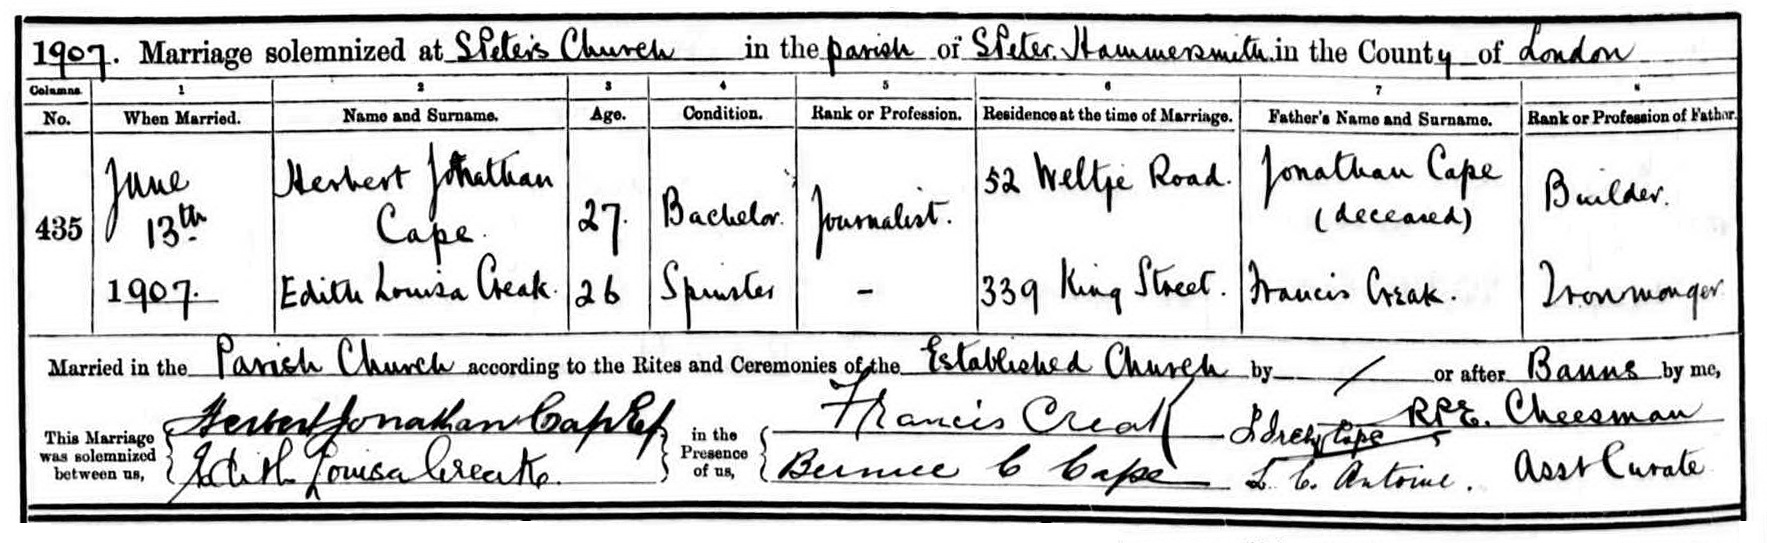 1907. Marriage solemnized at S. Peter's Church in the parish of S. Peter. Hammersmith. in the County of London
Columns 1 2 3 4 5 6 7 8
No. When Married. Name and Surname. Age. Condition. Rank or Profession. Residence at the time of Marriage. Father's Name and Surname. Rank or Profession of Father.
435 June 13th 1907. Herbert Jonathan Cape. 27. Bachelor. Journalist. 52 Weltje Road. Jonathan Cape (deceased) Builder.
Edith Louisa Creak. 26 Spinster - 339 King Street. Francis Creak. Ironmonger
Married in the Parish Church according to the Rites and Ceremonies of the Established Church by / or after Banns by me,
This Marriage was solemnized between us, Herbert Jonathan Cape Edith Louisa Creak. in the Presence of us, Francis Creak Bernice C Cape Cape L. C. Antoine. R.P.E. Cheesman Asst Curate